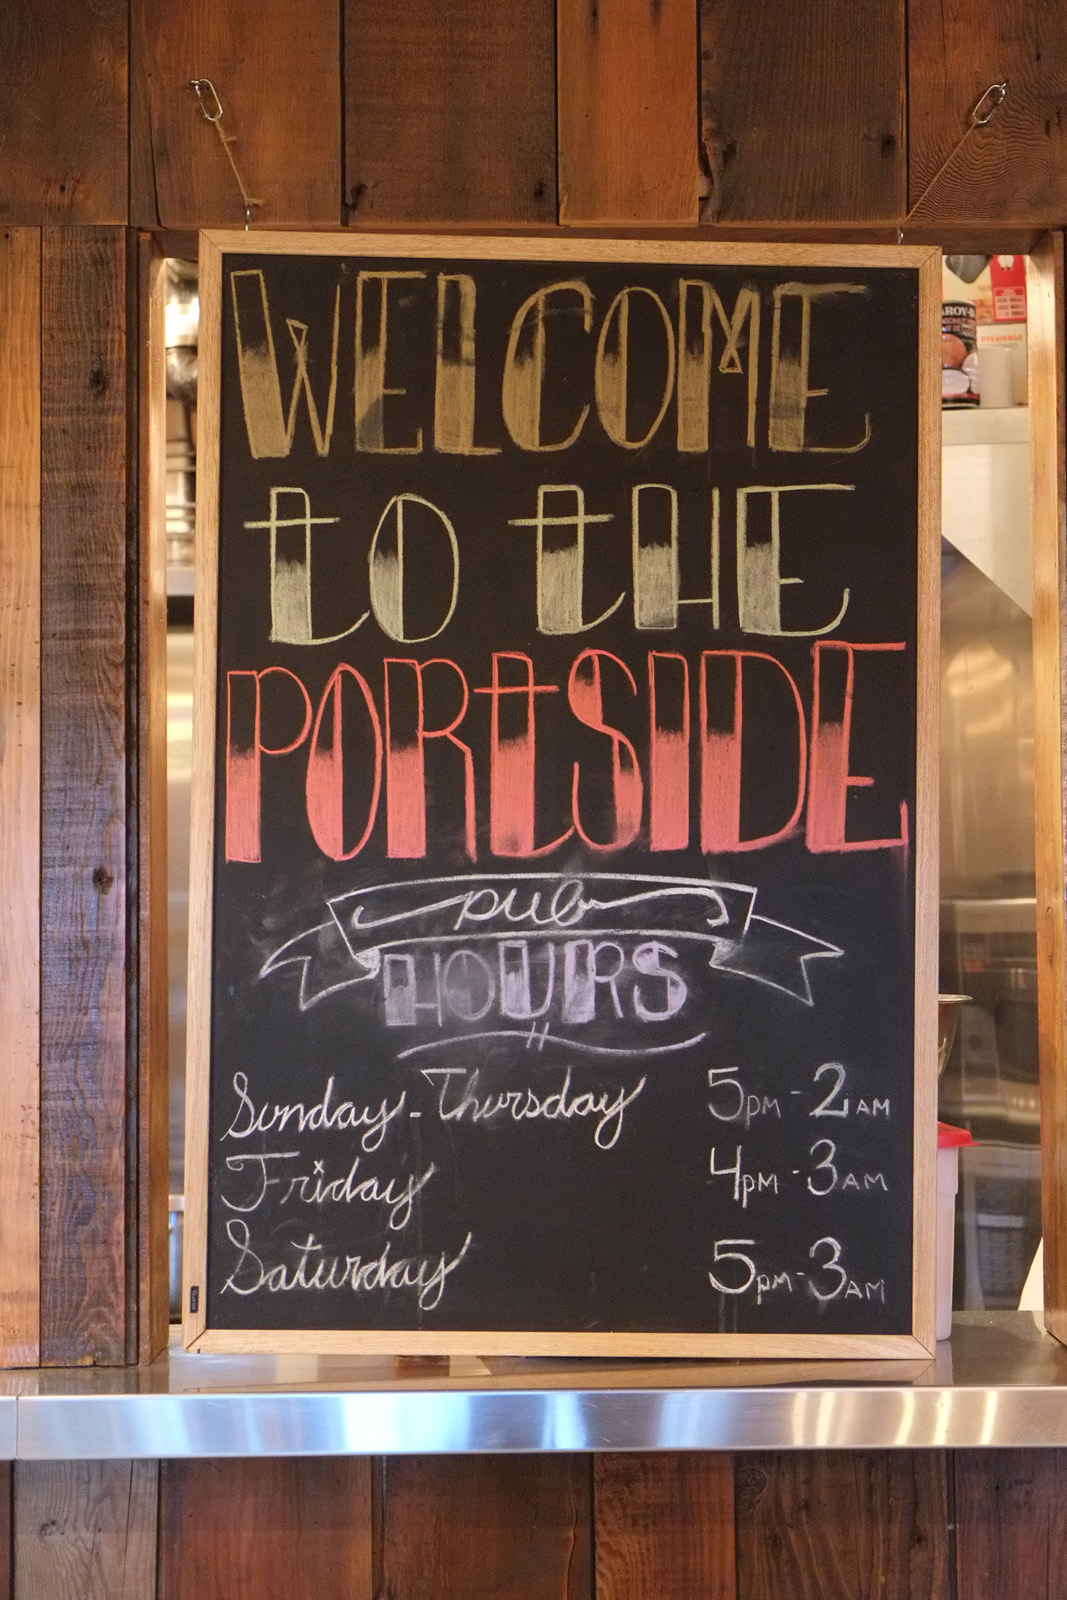 WELCOME
to tHE
PORtSIDE
pub
HOURS
Sunday - Thursday 5pm - 2am
Friday 4pm - 3am
Saturday 5pm - 3am